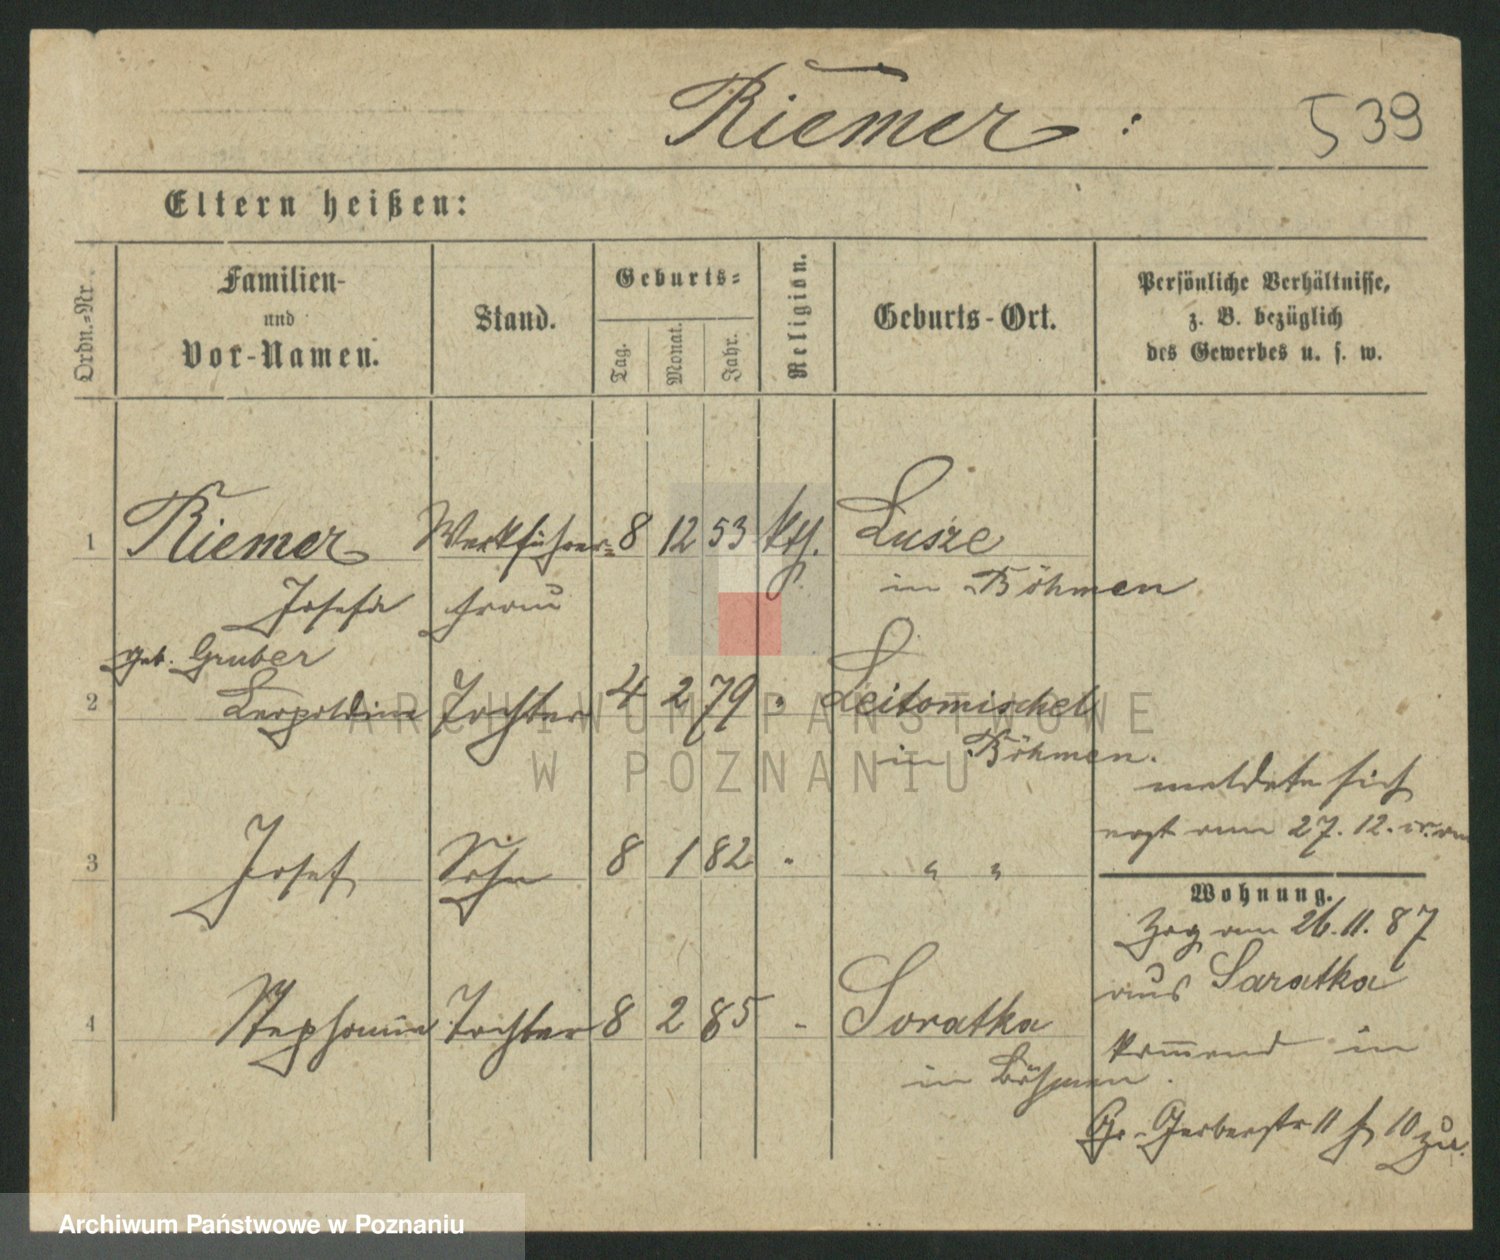 Riemer :
539
Eltern heißen:
Ordn.-Nr.
Familien-
und
Vor-Namen.
Stand.
Geburts-
Tag.
Monat.
Jahr.
Religion.
Geburts-Ort.
Persönliche Verhältnisse,
z. B. bezüglich
des Gewerbes u. s. w.
1 Riemer Werkführer- 8 12 53 kth. Lusze
Josefa frau in Böhmen
geb. Gruber
2 Leopoldine Tochter 4 2 79 " Leitomischel
in Böhmen.
meldete sich
erst am 27. 12. cr. an
3 Josef Sohn 8 1 82 " " "
Wohnung.
Zog am 26.11.87
aus Saratka
4 Stephanie Tochter 8 2 85 - Soratka
kommend in
in Böhmen.
Gr. Gerberstr 11 f 10 zu.
ARCHIWUM PAŃSTWOWE
W POZNANIU
Archiwum Państwowe w Poznaniu